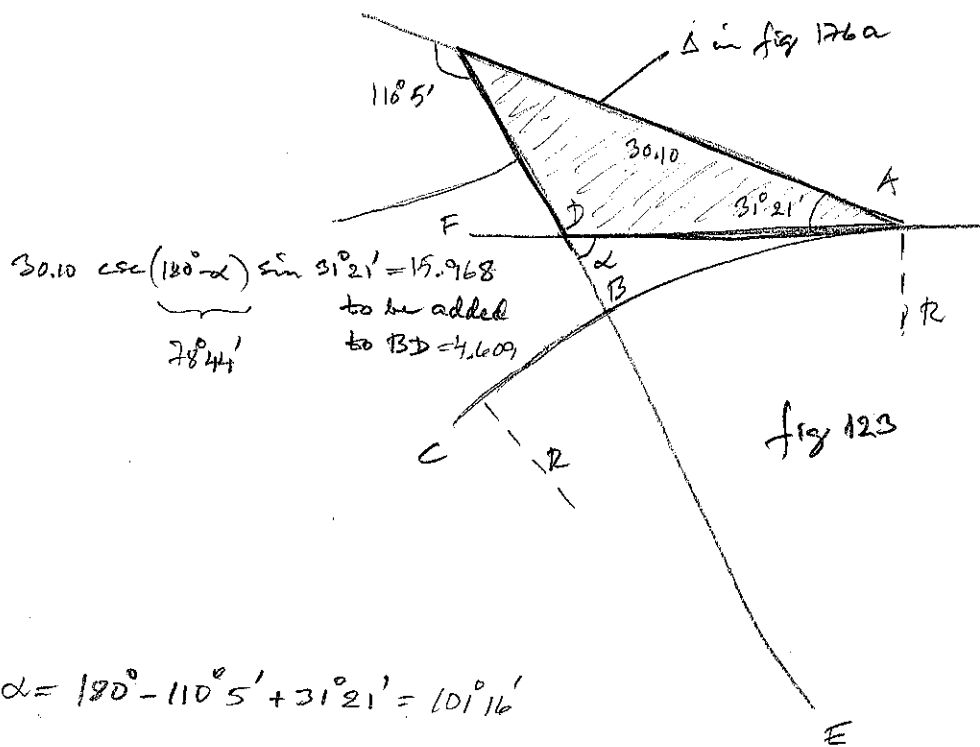 Δ in fig 176a
110° 5'
30.10
A
31° 21'
F
D
α
30.10 csc(180°-α) sin 31°21' = 15.968
78°44'
to be added
to BD = 4.609
B
R
fig 123
C
R
α = 180° - 110° 5' + 31° 21' = 101° 16'
E